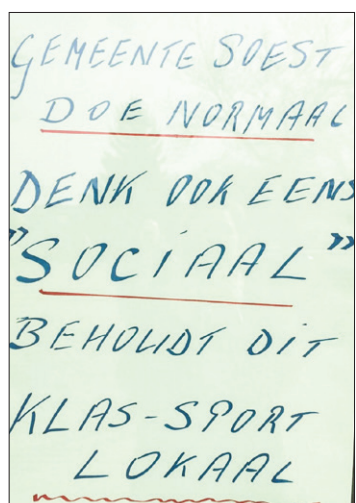 GEMEENTE SOEST
DOE NORMAAL
DENK OOK EENS
"SOCIAAL"
BEHOUDT DIT
KLAS-SPORT
LOKAAL